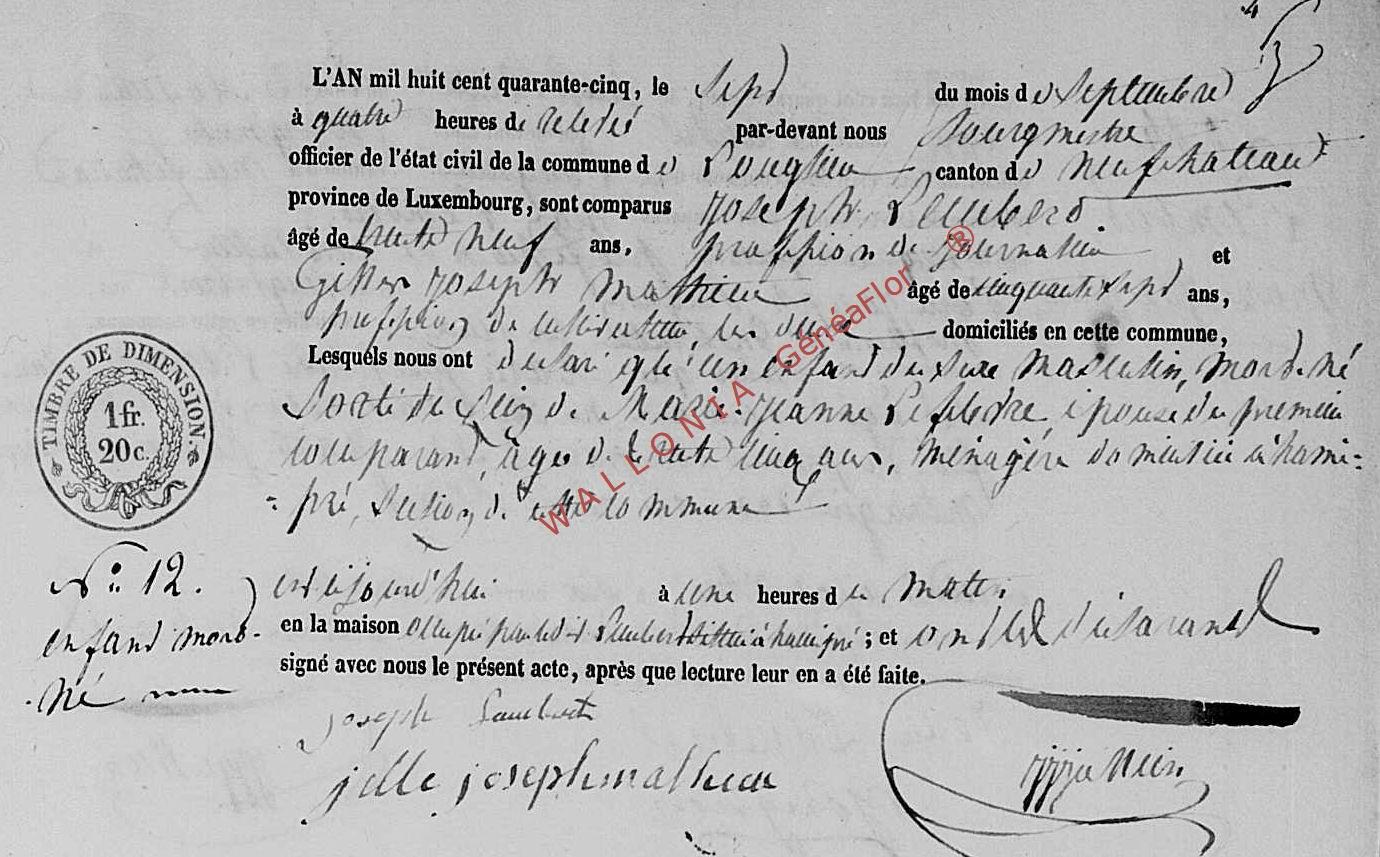 L'AN mil huit cent quarante-cinq, le Sept du mois de Septembre
à quatre heures de relevée par-devant nous Bourgmestre
officier de l'état civil de la commune de Longlier canton de Neufchateau
province de Luxembourg, sont comparus Joseph Lambert
âgé de trente neuf ans, profession de journalier et
Gilles Joseph Mathieu âgé de cinquante sept ans,
profession de cultivateur, les deux domiciliés en cette commune,
Lesquels nous ont déclaré qu'un enfant du sexe masculin, mort-né
Sorti du Sein de Marie-Jeanne épouse du premier
comparant, âgée de trente cinq ans, ménagère domiciliée à hami-
pré, Section de cette commune
TIMBRE DE DIMENSION.
1 fr.
20 c.
N° 12.
enfant mort-
né
est aujourd'hui à une heures du matin
en la maison occupée par ledit Lambert située à hamipré ; et ont les déclarants
signé avec nous le présent acte, après que lecture leur en a été faite.
joseph Lambert
jille joseph mathieu
WALLONIA GénéaFlor ®